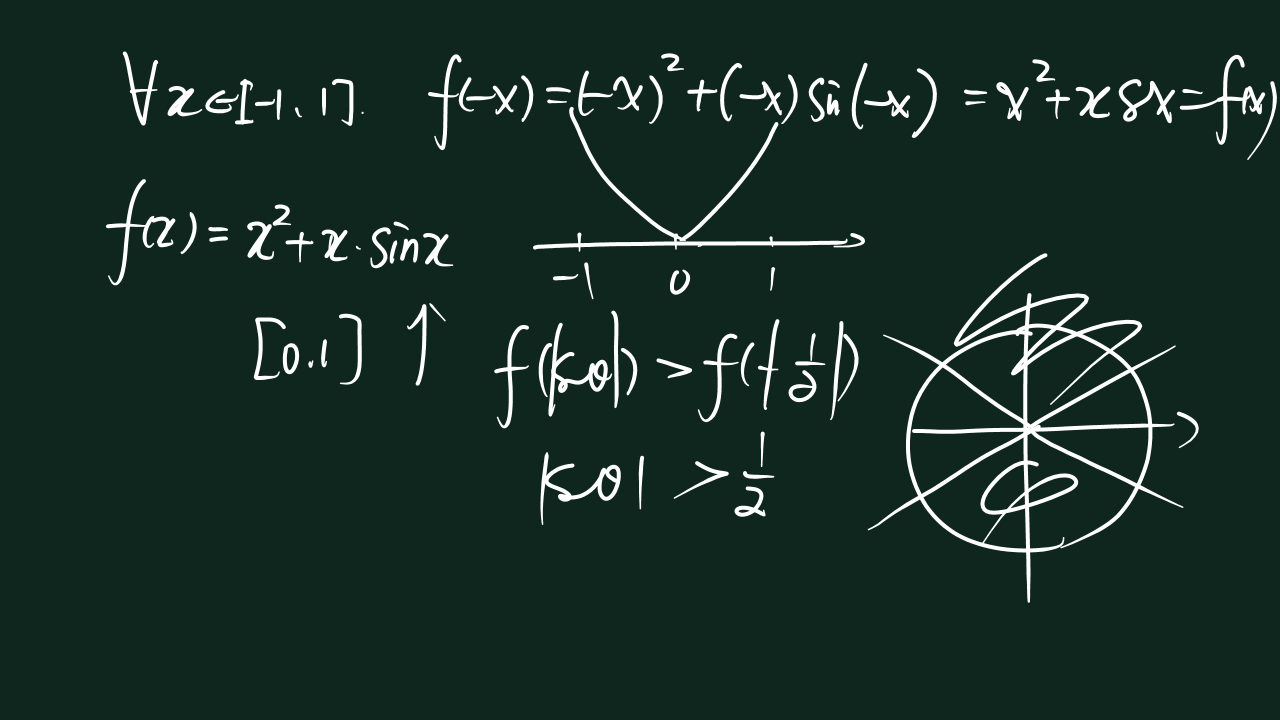 ∀x∈[-1, 1]. f(-x)=(-x)²+(-x)sin(-x) = x²+x sx=f(x)
f(x)= x²+x·sinx
-1 0 1
[0.1] ↑ f(|sθ|) > f(|-1/2|)
|sθ| > 1/2